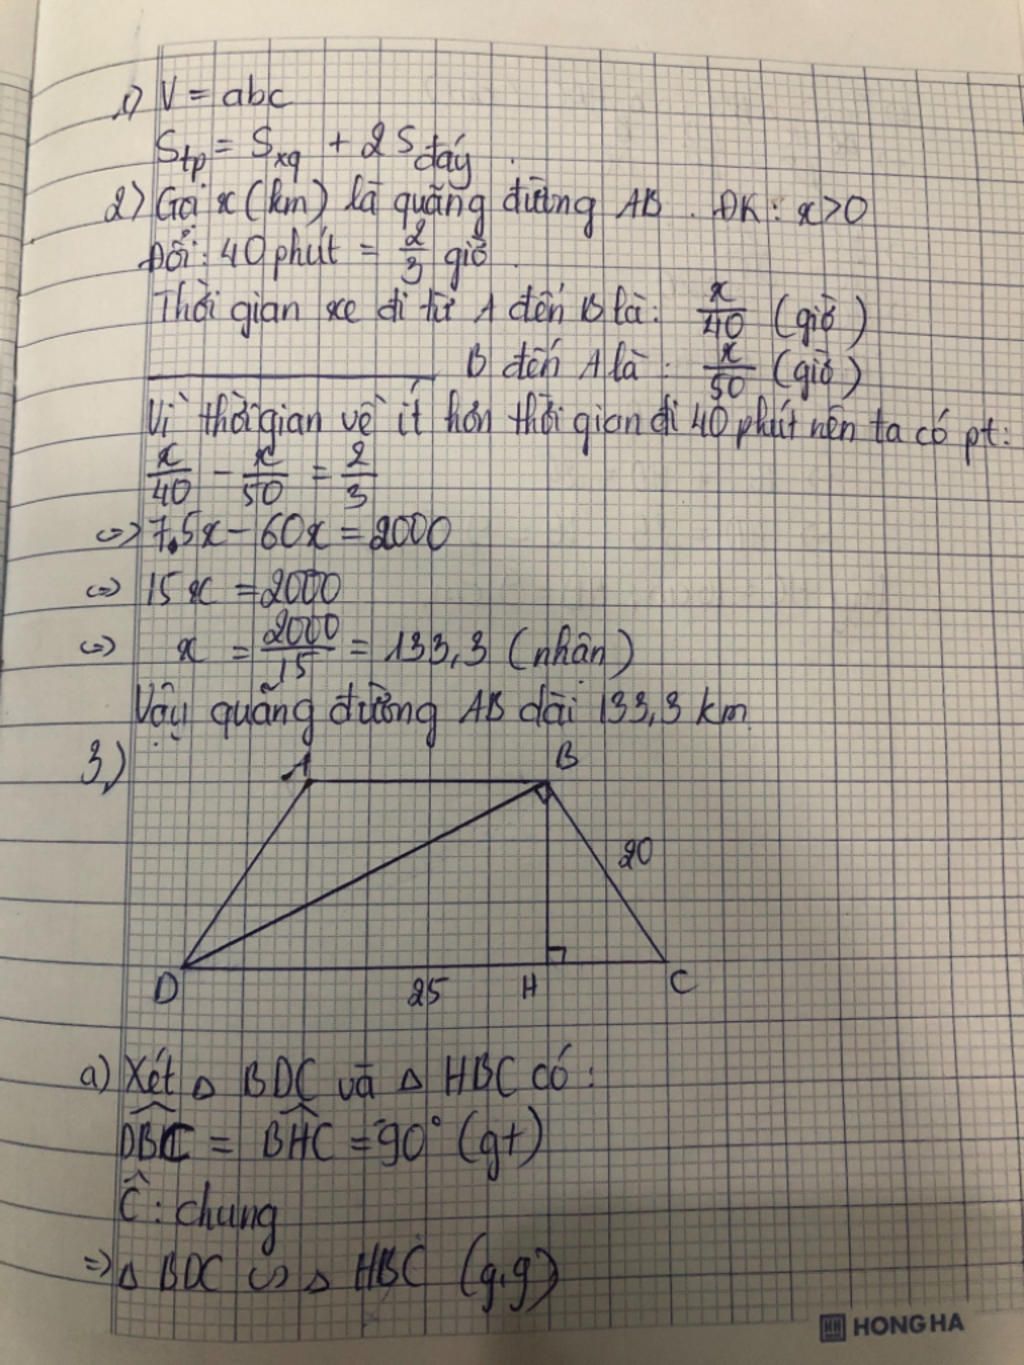 1) V = abc
Stp = Sxq + 2 Sđáy.
2) Gọi x (km) là quãng đường AB. ĐK: x>0
Đổi: 40 phút = 2/3 giờ.
Thời gian xe đi từ A đến B là: x/40 (giờ)
B đến A là: x/50 (giờ)
Vì thời gian về ít hơn thời gian đi 40 phút nên ta có pt:
x/40 - x/50 = 2/3
<=> 75x - 60x = 2000
<=> 15x = 2000
<=> x = 2000/15 = 133,3 (nhận)
Vậy quãng đường AB dài 133,3 km.
3)
A B
20
D 25 H C
a) Xét Δ BDC và Δ HBC có:
\widehat{DBC} = \widehat{BHC} = 90° (gt)
\widehat{C}: chung
=> Δ BDC ∽ Δ HBC (g.g)
HH HONG HA